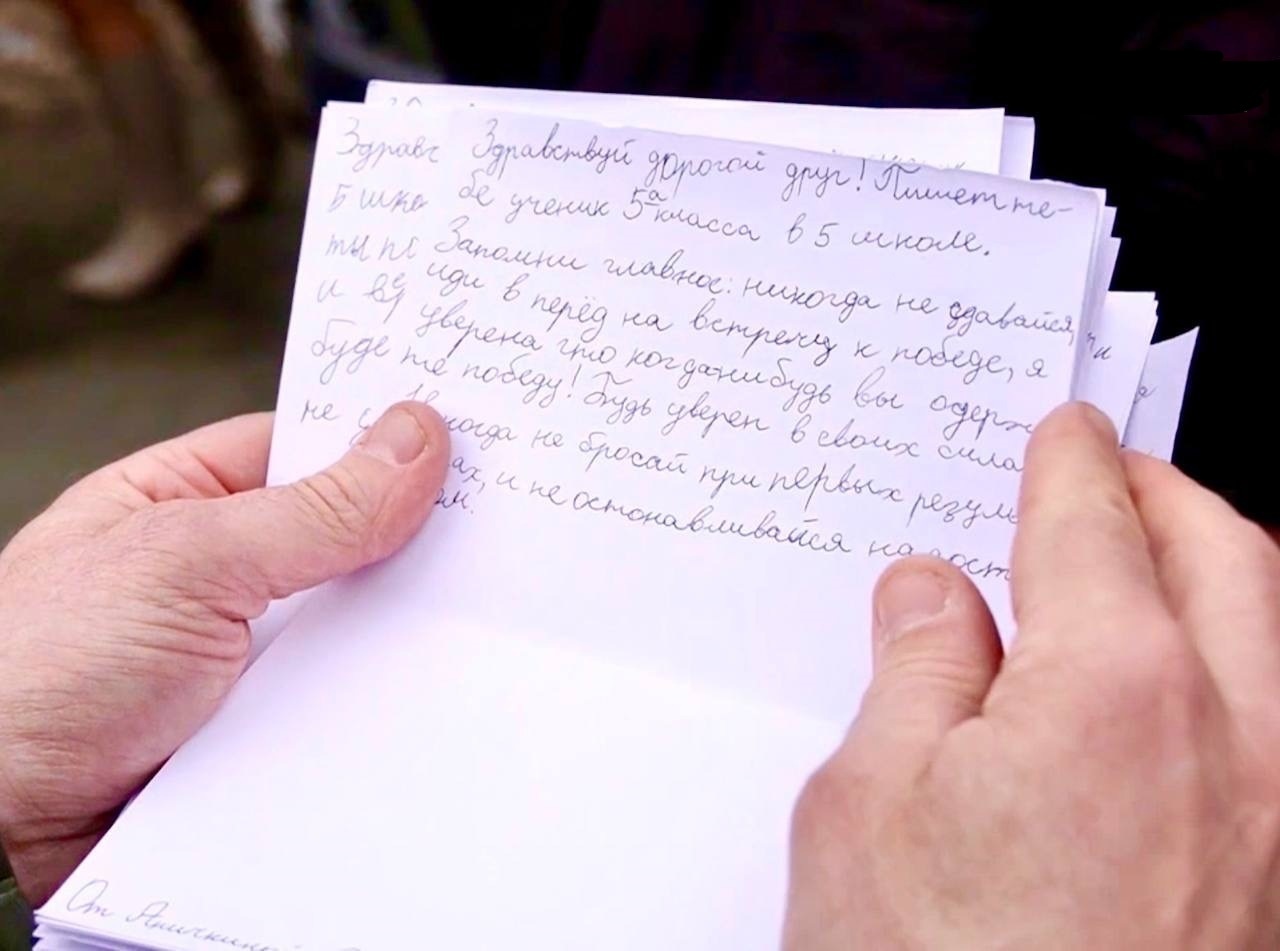 Здравствуй дорогой друг! Пишет те-
бе ученик 5а класса в 5 школе.
Запомни главное: никогда не сдавайся,
иди в перёд на встречу к победе, я
уверена что когда-нибудь вы одерж
те победу! Будь уверен в своих сила
когда не бросай при первых резуль
ах, и не остонавливайся на дост
ом.
От Яничкиной
Здравс
5 шко
ты по
и
буде
не у